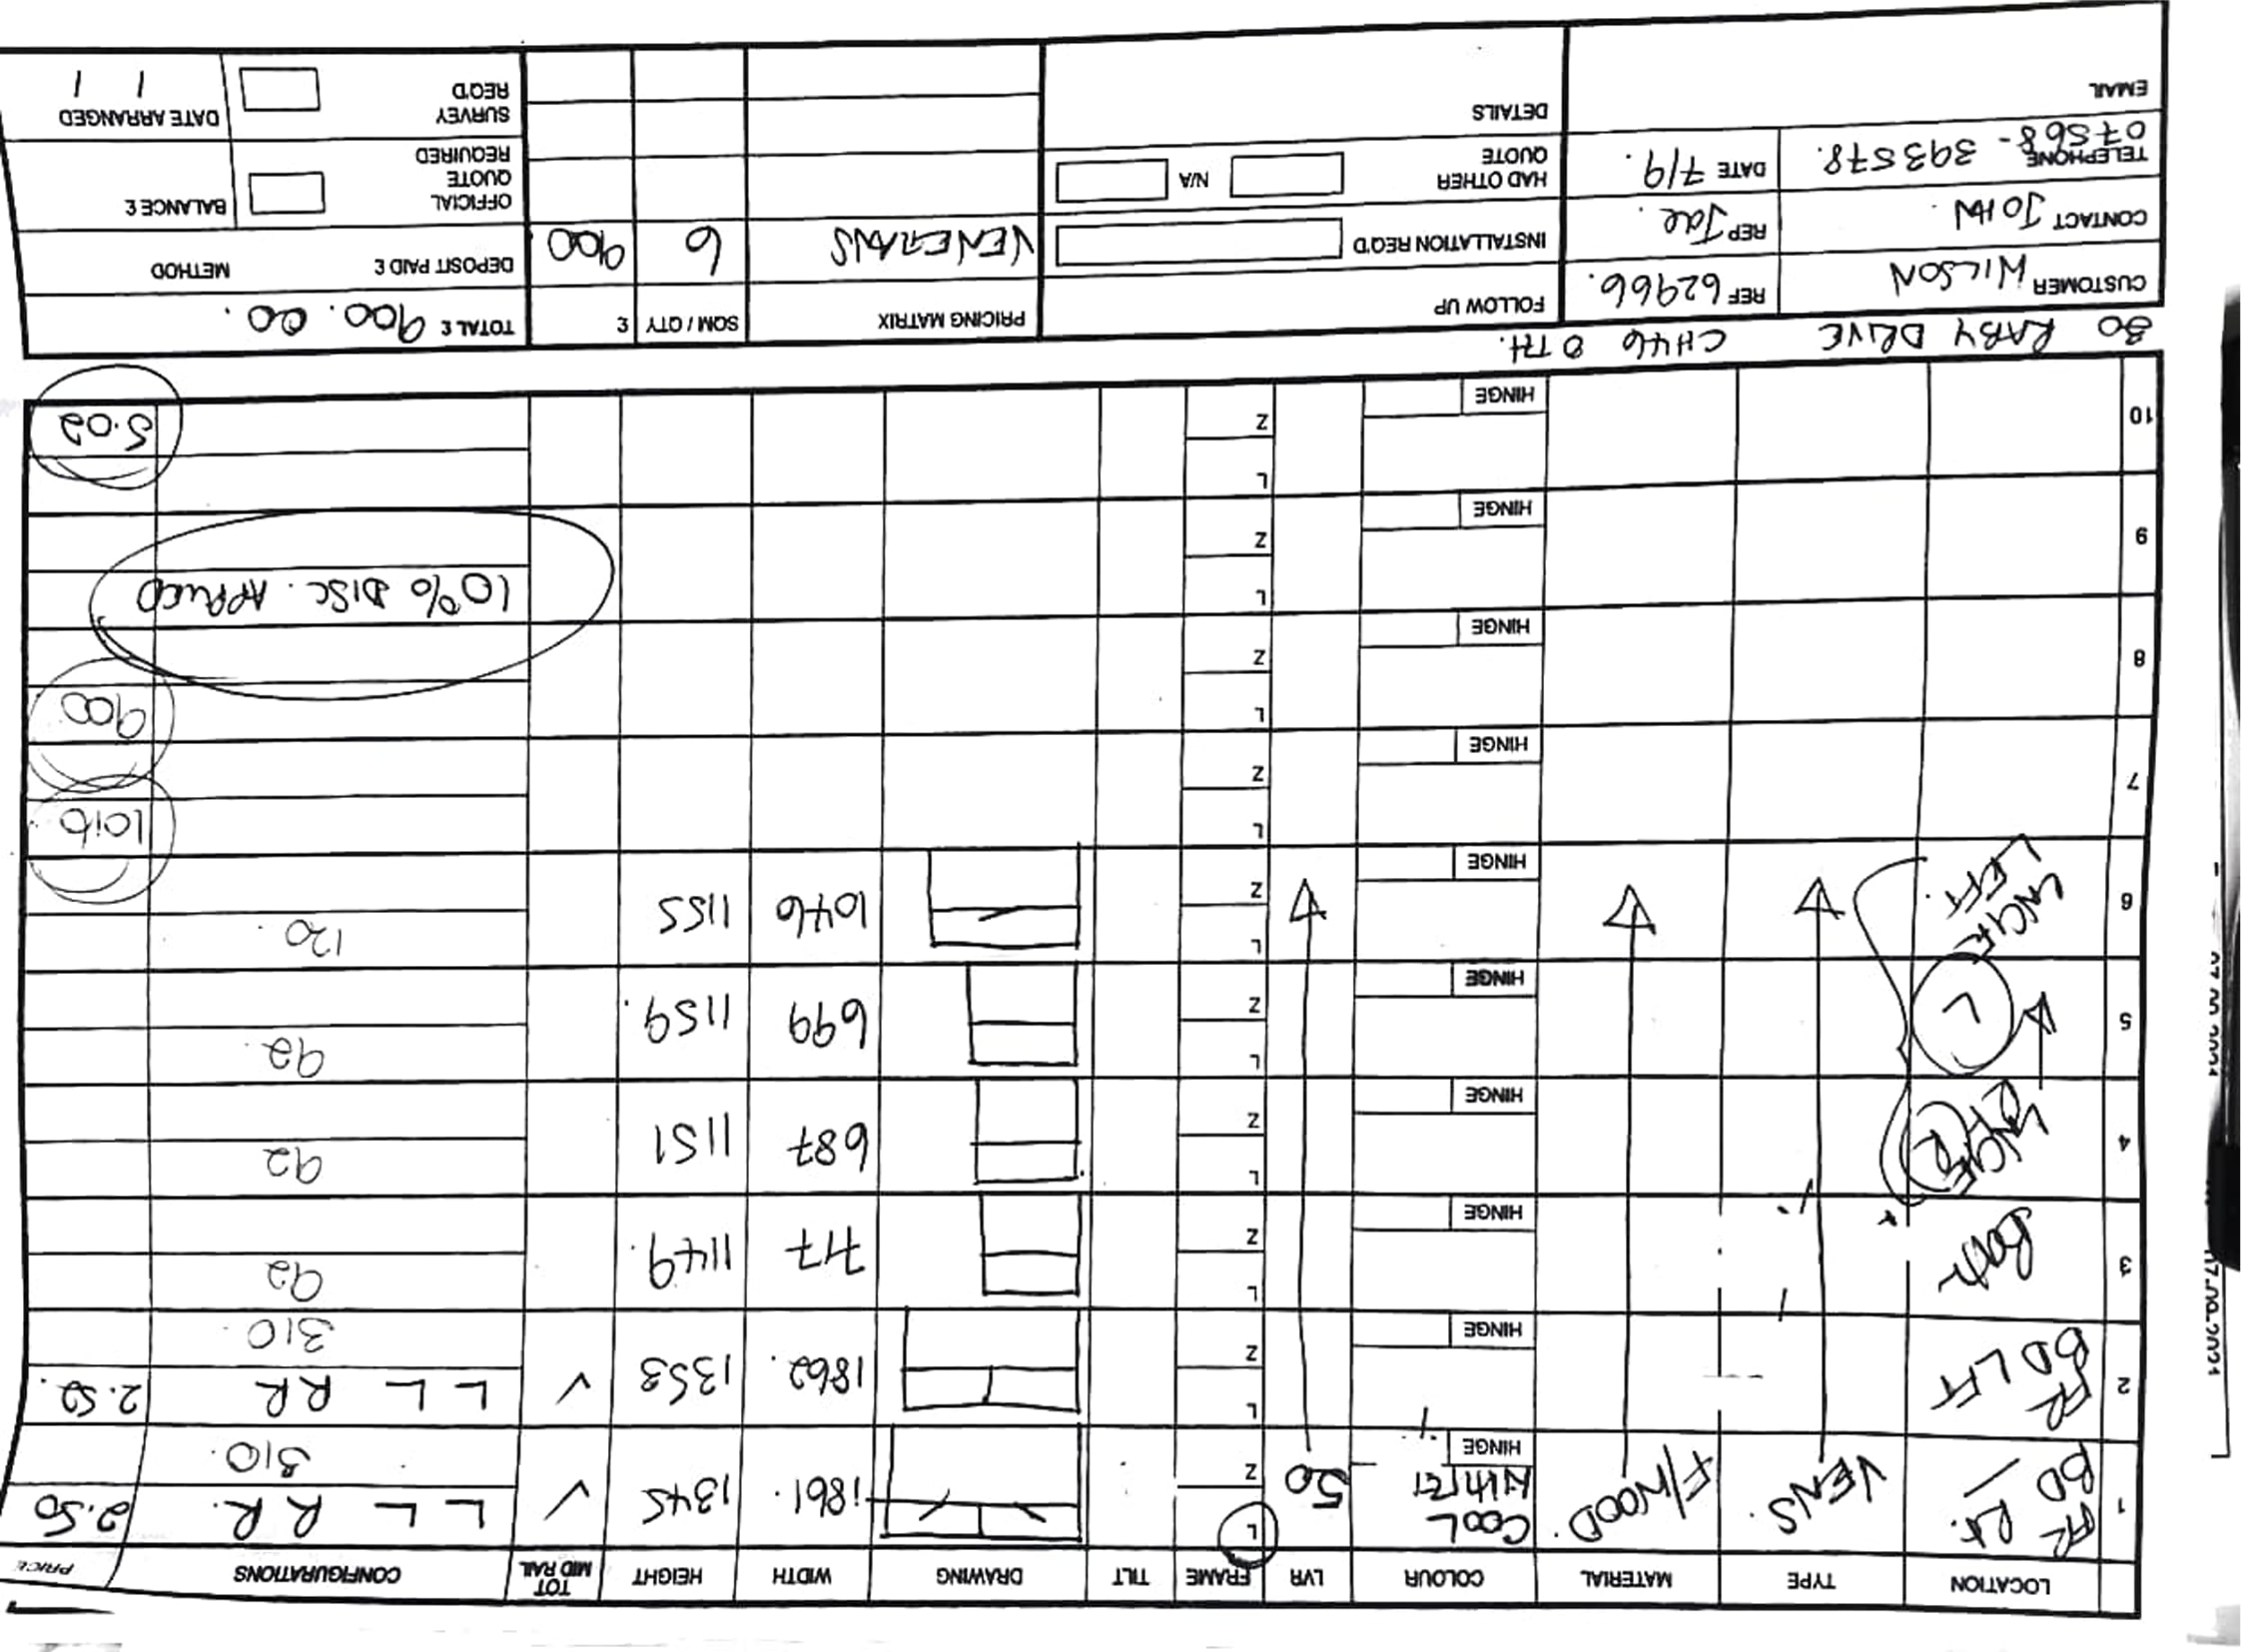 LOCATION TYPE MATERIAL COLOUR LVR FRAME TILT DRAWING WIDTH HEIGHT TOT MID RAIL CONFIGURATIONS PRICE
1 FR BD Rt. VENS. F/WOOD. COOL HINGE 50 L Z 1861. 1345 ✓ L L R R. 310. 2.50
2 FR BD LFT HINGE L Z 1862. 1353 ✓ L L R R 310. 2.52.
3 HINGE L Z 717 1149. 92
4 HINGE L Z 687 1151 92
5 L HINGE L Z 699 1159. 92.
6 LEFT. HINGE L Z 1046 1155 120.
7 HINGE L Z 1016
8 HINGE L Z 900
9 HINGE L Z 10% DISC. APPLIED
10 HINGE L Z 5.02
80 RABY DRIVE CH46 0TH.
CUSTOMER WILSON REF 62966. FOLLOW UP PRICING MATRIX SQM / QTY £ TOTAL £ 900.00.
CONTACT JOHN. REP Jae. INSTALLATION REQ'D VENETIANS 6 900 DEPOSIT PAID £ METHOD
TELEPHONE 07568-393578. DATE 7/9. HAD OTHER QUOTE N/A OFFICIAL QUOTE REQUIRED BALANCE £
EMAIL DETAILS SURVEY REQ'D DATE ARRANGED / /